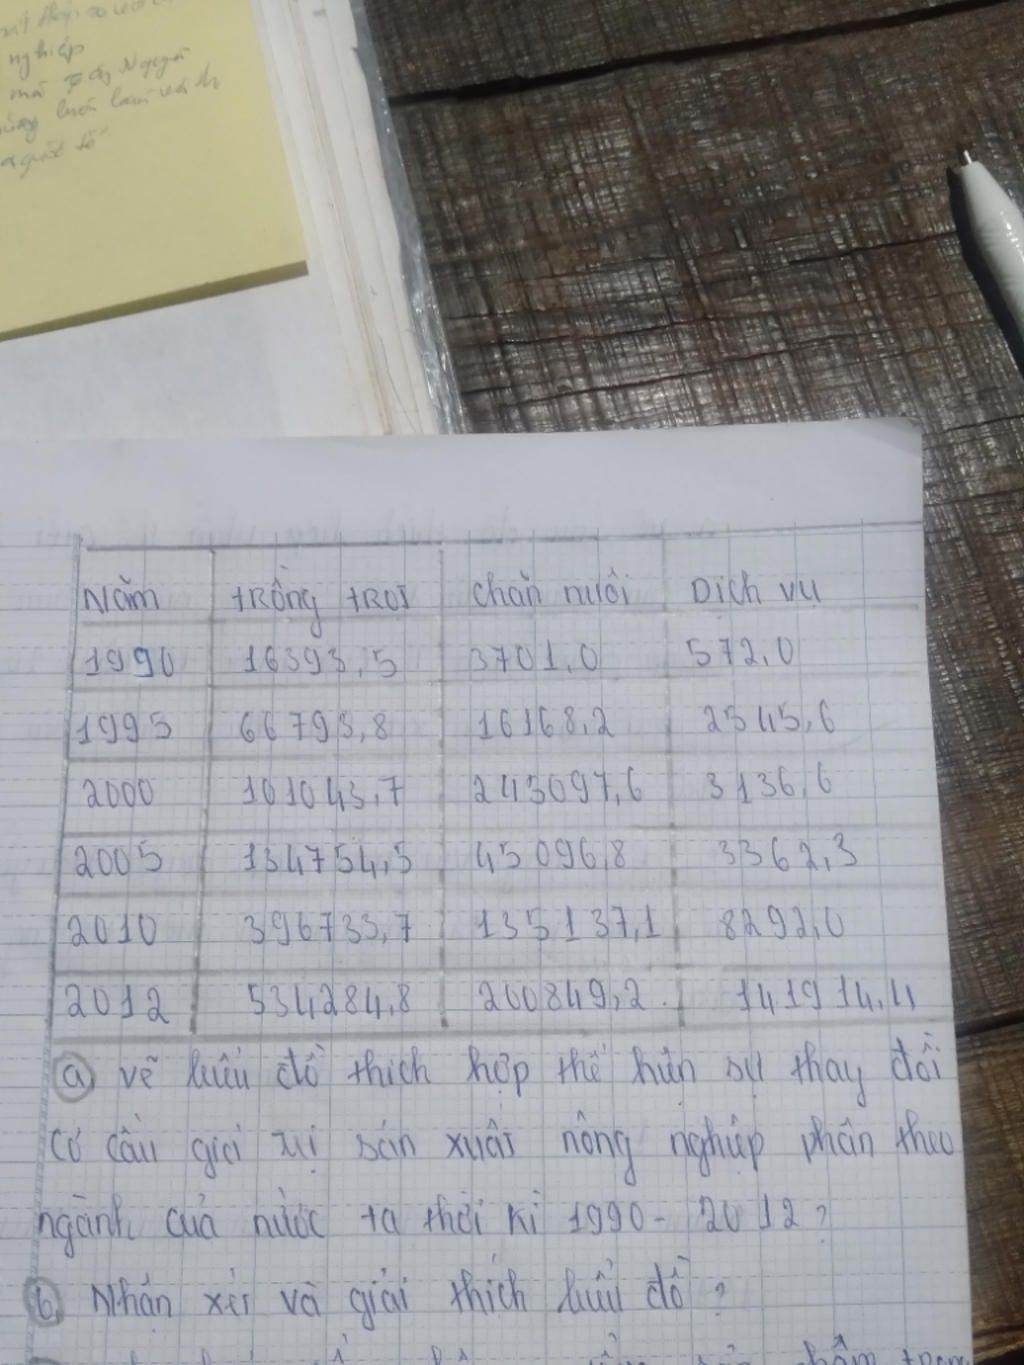 nghiệp
Năm tRồng tRọt chăn nuôi Dịch vụ
1990 16393,5 3701,0 572,0
1995 66793,8 16168,2 2545,6
2000 101043,7 245097,6 3136,6
2005 134754,5 45096,8 3362,3
2010 396733,7 135137,1 8292,0
2012 534284,8 200849,2. 141914,4
a vẽ biểu đồ thích hợp thể hiện sự thay đổi
cơ cấu giá trị sản xuất nông nghiệp phân theo
ngành của nước ta thời kì 1990- 2012?
b. Nhận xét và giải thích biểu đồ?